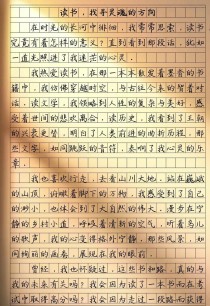 读书，我寻灵魂的方向
在时光的长河中徘徊，我常常思索，读书
究竟有着怎样的意义，直到看到那段话，犹如
一道光照进了我迷茫的心灵。
我热爱读书，在那一本本散发着墨香的书
籍中，我仿佛穿越时空，与古今中外的智者对
话。读文学，我领略到人性的复杂与美好，感
受着世间的悲欢离合，读历史，我看到了王朝
的兴衰更替，明白了人类前进的曲折历程，那
些文字，如同跳跃的音符，奏响了我心灵的乐
章。
我也喜欢行走，去看山川大地。站在巍峨
的山顶，俯瞰着脚下的万物，我感受到了自己
的渺小，也体会到了大自然的伟大。漫步在宁
静的乡村小道，呼吸着清新的空气，听着鸟儿
的歌声，我的心变得格外宁静。那些风景，如
同绚丽的画卷，展现在我的眼前。
曾经，我也怀疑过，这些书和路，真的与
我的未来有关吗？我会因为读了一本书而在考
试中取得高分吗？我会因为走过一段路而找到